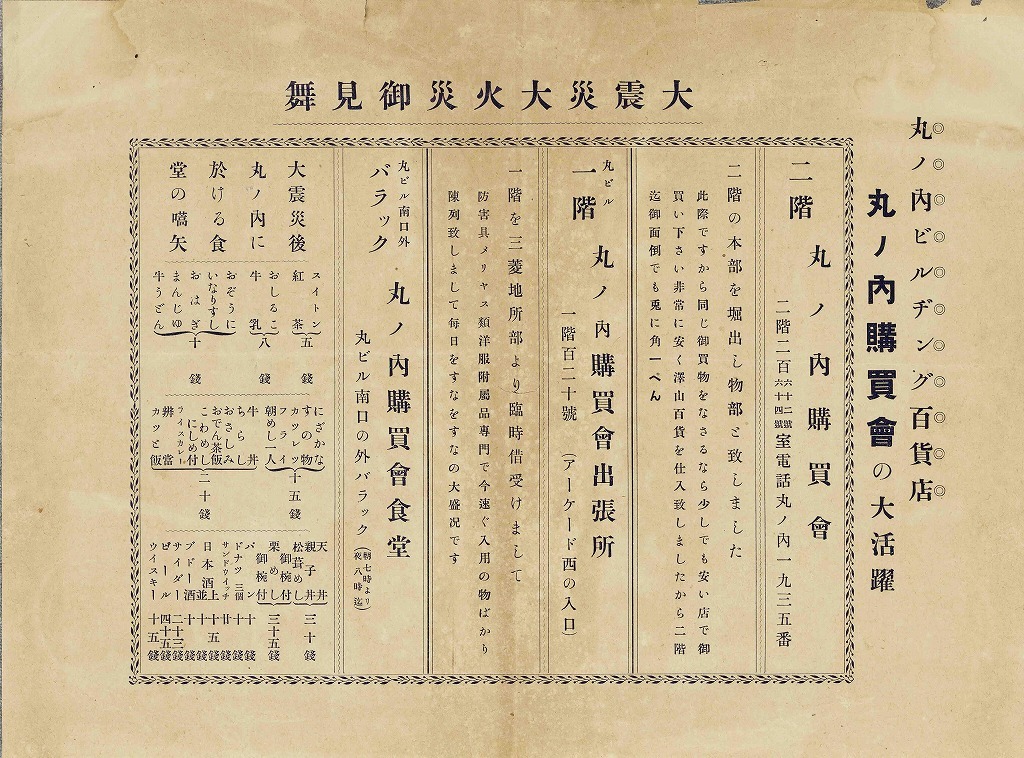 大震災大火災御見舞
丸ノ內ビルヂング百貨店
丸ノ內購買會の大活躍
二階 丸ノ內購買會
二階二百六十二號六十四號室電話丸ノ內一九三五番
二階の本部を堀出し物部と致しました
此際ですから同じ御買物をなさるなら少しでも安い店で御
買い下さい非常に安く澤山百貨を仕入致しましたから二階
迄御面倒でも兎に角一ぺん
丸ビル
一階 丸ノ內購買會出張所
一階百二十號(アーケード西の入口)
一階を三菱地所部より臨時借受けまして
防害具メリヤス類洋服附屬品專門で今速ぐ入用の物ばかり
陳列致しまして每日をすなをすなの大盛況です
丸ビル南口外
バラック 丸ノ內購買會食堂
丸ビル南口の外バラック(朝七時より夜八時迄)
大震災後
丸ノ內に
於ける食
堂の嚆矢
スイトン
紅茶
五錢
おしるこ
牛乳
八錢
おぞうに
いなりすし
おはぎ
まんじゆ
牛うどん
十錢
にざかな
すの物
カツレツ
フライ
朝めし一人
十五錢
牛丼
ちらし
おさしみ
おでん茶飯
こわめし
にしめ付
ライスカレー
辨當
カツと飯
二十錢
天丼
親子丼
松茸めし
御椀付
三十錢
栗めし
御椀付
三十五錢
パン 十錢
ドナツ 三個 十錢
サンドウイッチ 廿錢
日本酒 上 十五錢
並 十錢
ブドー酒 十錢
サイダー 二十三錢
ビール 四十五錢
ウイスキー 十五錢